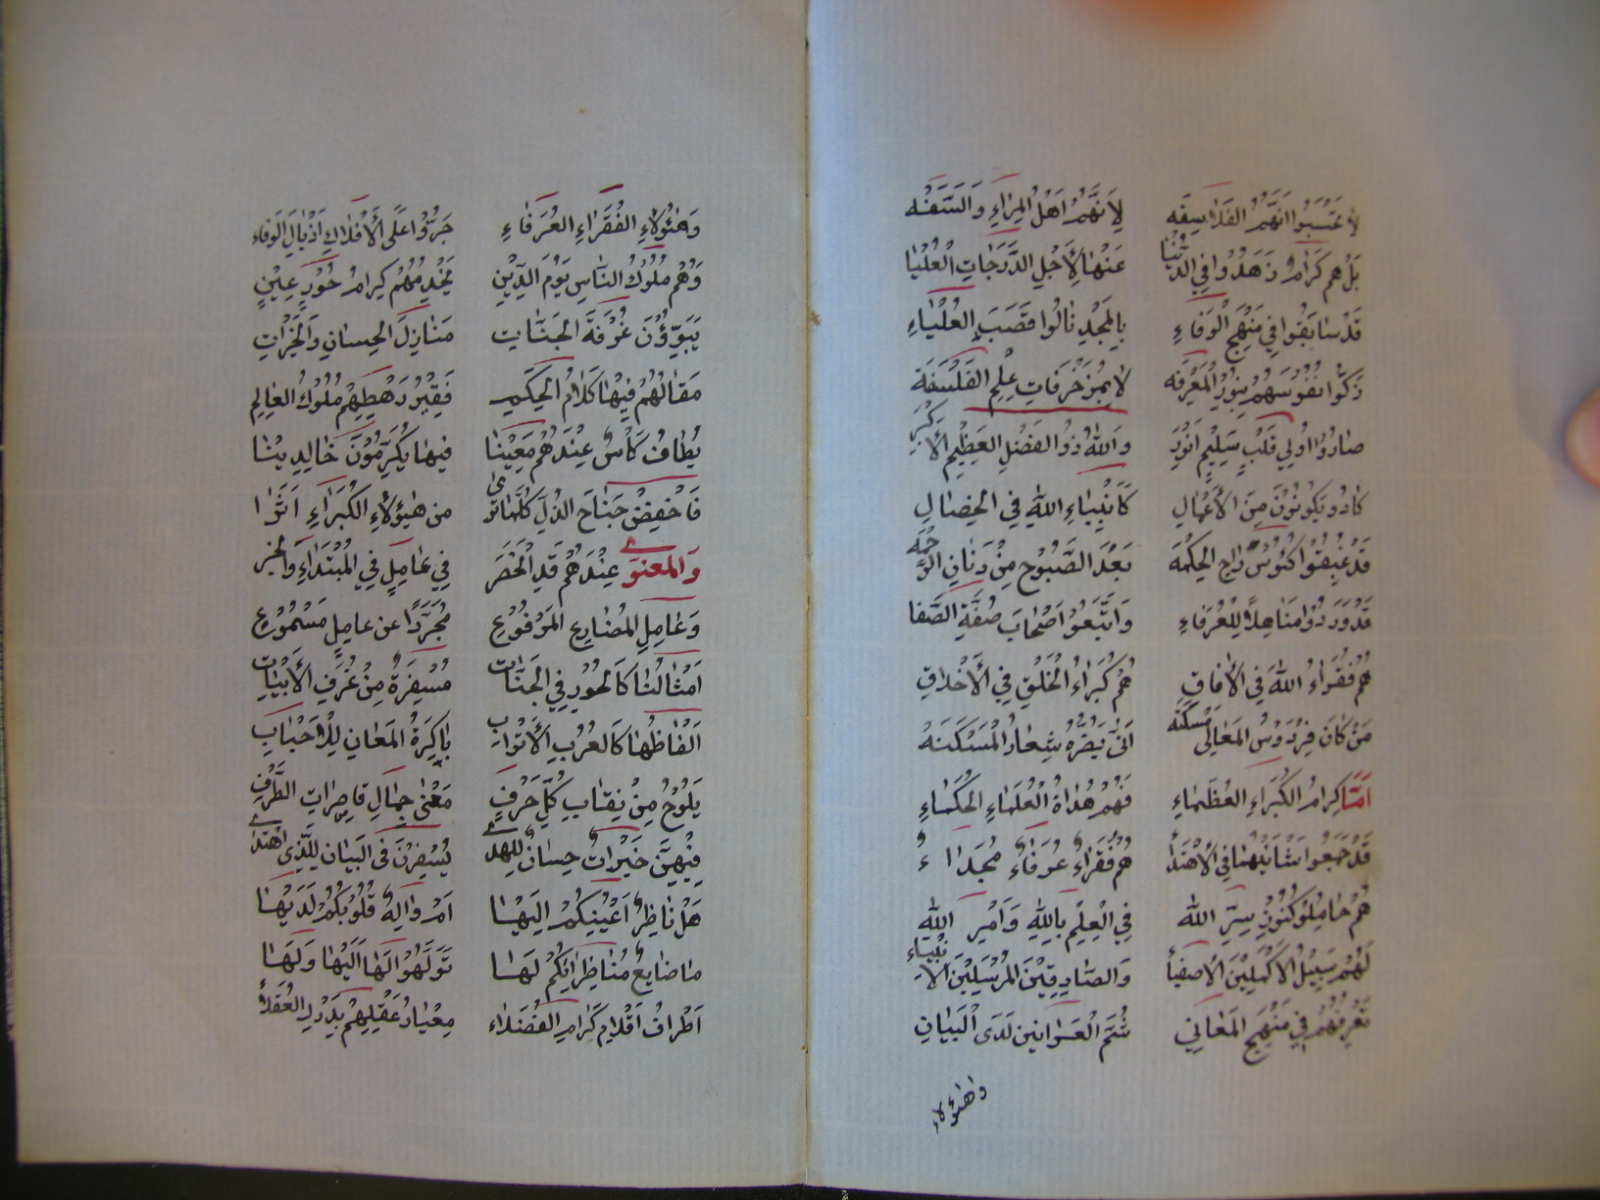 لا تحسبوا أنهم الفلاسفه لأنهم أهل المراء والسفه
بل هم كرام زهدوا في الدنيا عنها لأجل الدرجات العليا
قد سابقوا في منهج الوفاء بالمجد نالوا قصب العلياء
زكوا نفوسهم بنور المعرفه لا بمزخرفات علم الفلسفة
صاروا أولي قلب سليم أنور والله ذو الفضل العظيم الأكبر
كادو يكونون من الأعمال كأنبياء الله في الخصال
قد غبقوا كئوس راح الحكمة بعد الصبوح من دنان الرحمه
قد وردوا مناهلا للعرفاء واتبعوا أصحاب صفة الصفا
هم فقراء الله في الأفاق هم كبراء الخلق في الأخلاق
من كان فردوس المعالى مسكنه أنى يضره شعار المسكنه
أما كرام الكبراء العظماء فهم هداة العلماء الحكماء
قد جمعوا في الأهتدا هم فقراء عرفاء مجداء
هم حاملو كنوز سر الله في العلم بالله وأمر الله
لهم سبيل الأكملين الأصفيا والصادقين المرسلين الأنبياء
نعرفهم في منهج المعاني ثم العوانين لدى البيان
وهؤلاء
وهؤلاء الفقراء العرفاء جروا على الأفلاك أذيال الوفاء
وهم ملوك الناس يوم الدين يخدمهم كرام حور عين
يبوؤن غرفة الجنات منازل الحسان والخيرات
مقالهم فيها كلام الحكيم فقير رهطهم ملوك العالم
يطاف كأس عندهم معينا فيها يكرمون خالدينا
فاخفض جناح الذل كلما ترى من هؤلاء الكبراء أثرا
والمعنوي عندهم قد انحصر في عامل في المبتداء والخبر
وعامل المضارع المرفوع مجردا عن عامل مسموع
أمثالنا كالحور في الجنات مسفرة من غرف الأبيات
ألفاظها كالعرب الأتراب باكرة المعان للأحباب
يلوح من نقاب كل حرف معنى جمال قاصرات الطرف
فيهن خيرات حسان للهدى يسفرن في البيان للذي اهتدى
هل ناظر أعينكم إليها أم واله قلوبكم لديها
ما ضايع مناظراتكم لها تولهوا لها إليها ولها
أطراف أقلام كرام الفضلاء معيار عقلهم بدرك العقلا